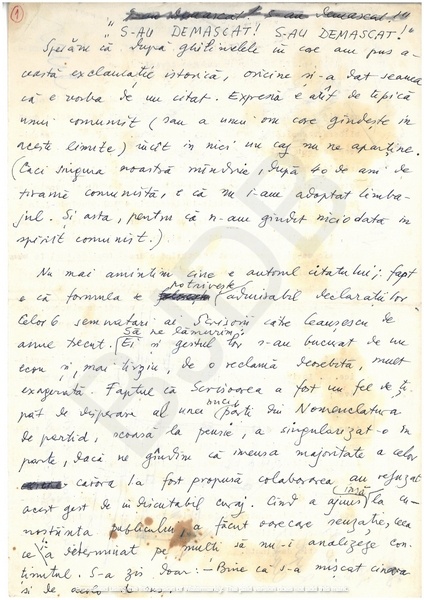 1
"S-AU DEMASCAT! S-AU DEMASCAT!"
Sperăm că după ghilimelele în care am pus a-
ceastă exclamație istorică, oricine și-a dat seama
că e vorba de un citat. Expresia e atît de tipică
unui comunist (sau a unui om care gîndește în
aceste limite) încît în nici un caz nu ne aparține.
(Căci singura noastră mîndrie, după 40 de ani de
tiranie comunistă, e că nu i-am adoptat limba-
jul. Și asta, pentru că n-am gîndit niciodată în
spirit comunist.)
Nu mai amintim cine e autorul citatului; fapt
e că formula se potrivește admirabil declarațiilor
celor 6 semnatari ai Scrisorii către Ceausescu de
anul trecut. Să ne lămurim: Ei și gestul lor s-au bucurat de un
ecou și, mai tîrziu, de o reclamă deosebită, mult
exagerată. Faptul că Scrisoarea a fost un fel de ți-
păt de disperare al unei mici părți din Nomenclatura
de partid, scoasă la pensie, a singularizat-o în
parte, dacă ne gîndim că imensa majoritate a celor
cărora le fost propusă colaborarea au refuzat
acest gest de indiscutabil curaj. Cînd a ajuns însă la cu-
noștința publicului, a făcut oarecare senzație, ceea
ce i-a determinat pe mulți să nu-i analizeze con-
ținutul. S-a zis doar: - Bine că s-a mișcat cineva
și de acolo